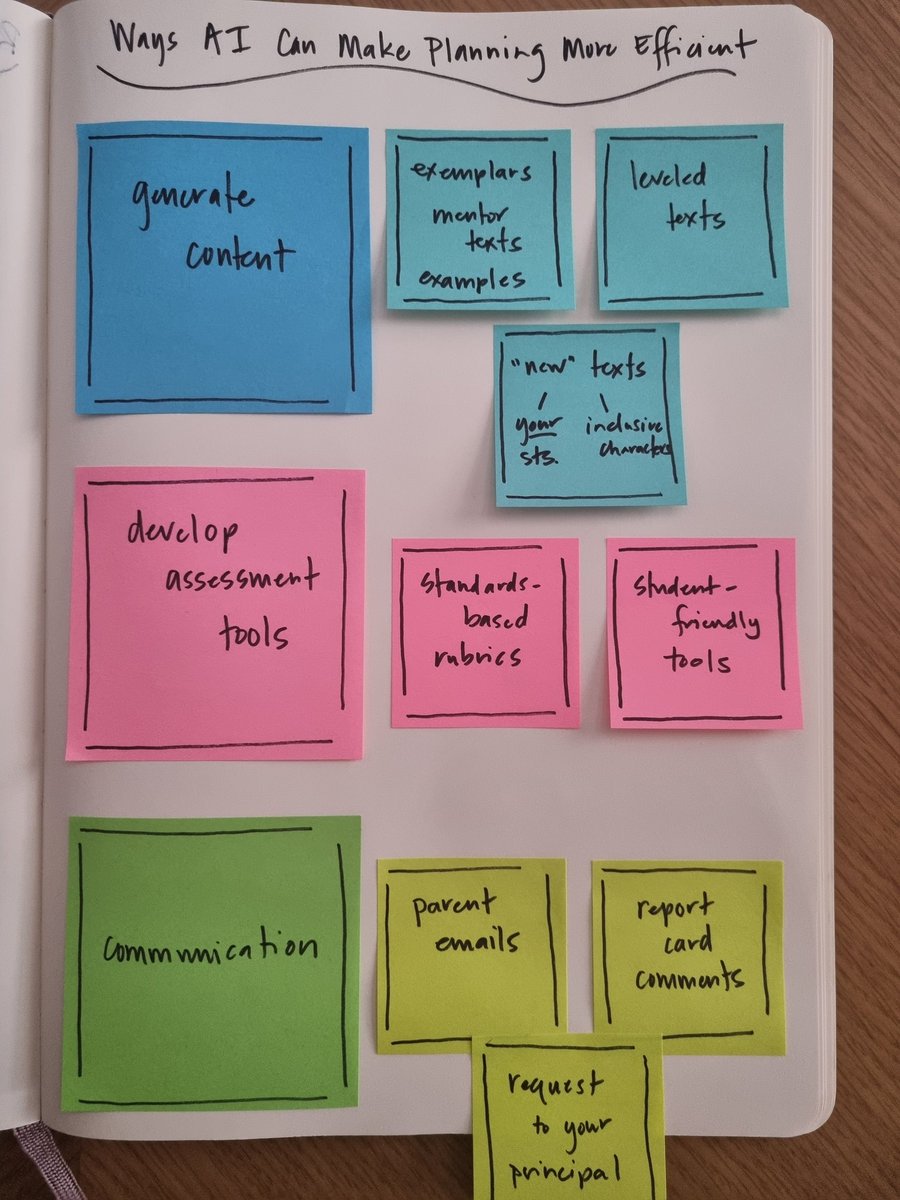 Ways AI Can Make Planning More Efficient
generate
content
exemplars
mentor
texts
examples
leveled
texts
"new" texts
your inclusive
sts. characters
develop
assessment
tools
standards-
based
rubrics
student-
friendly
tools
communication
parent
emails
report
card
comments
request
to your
principal